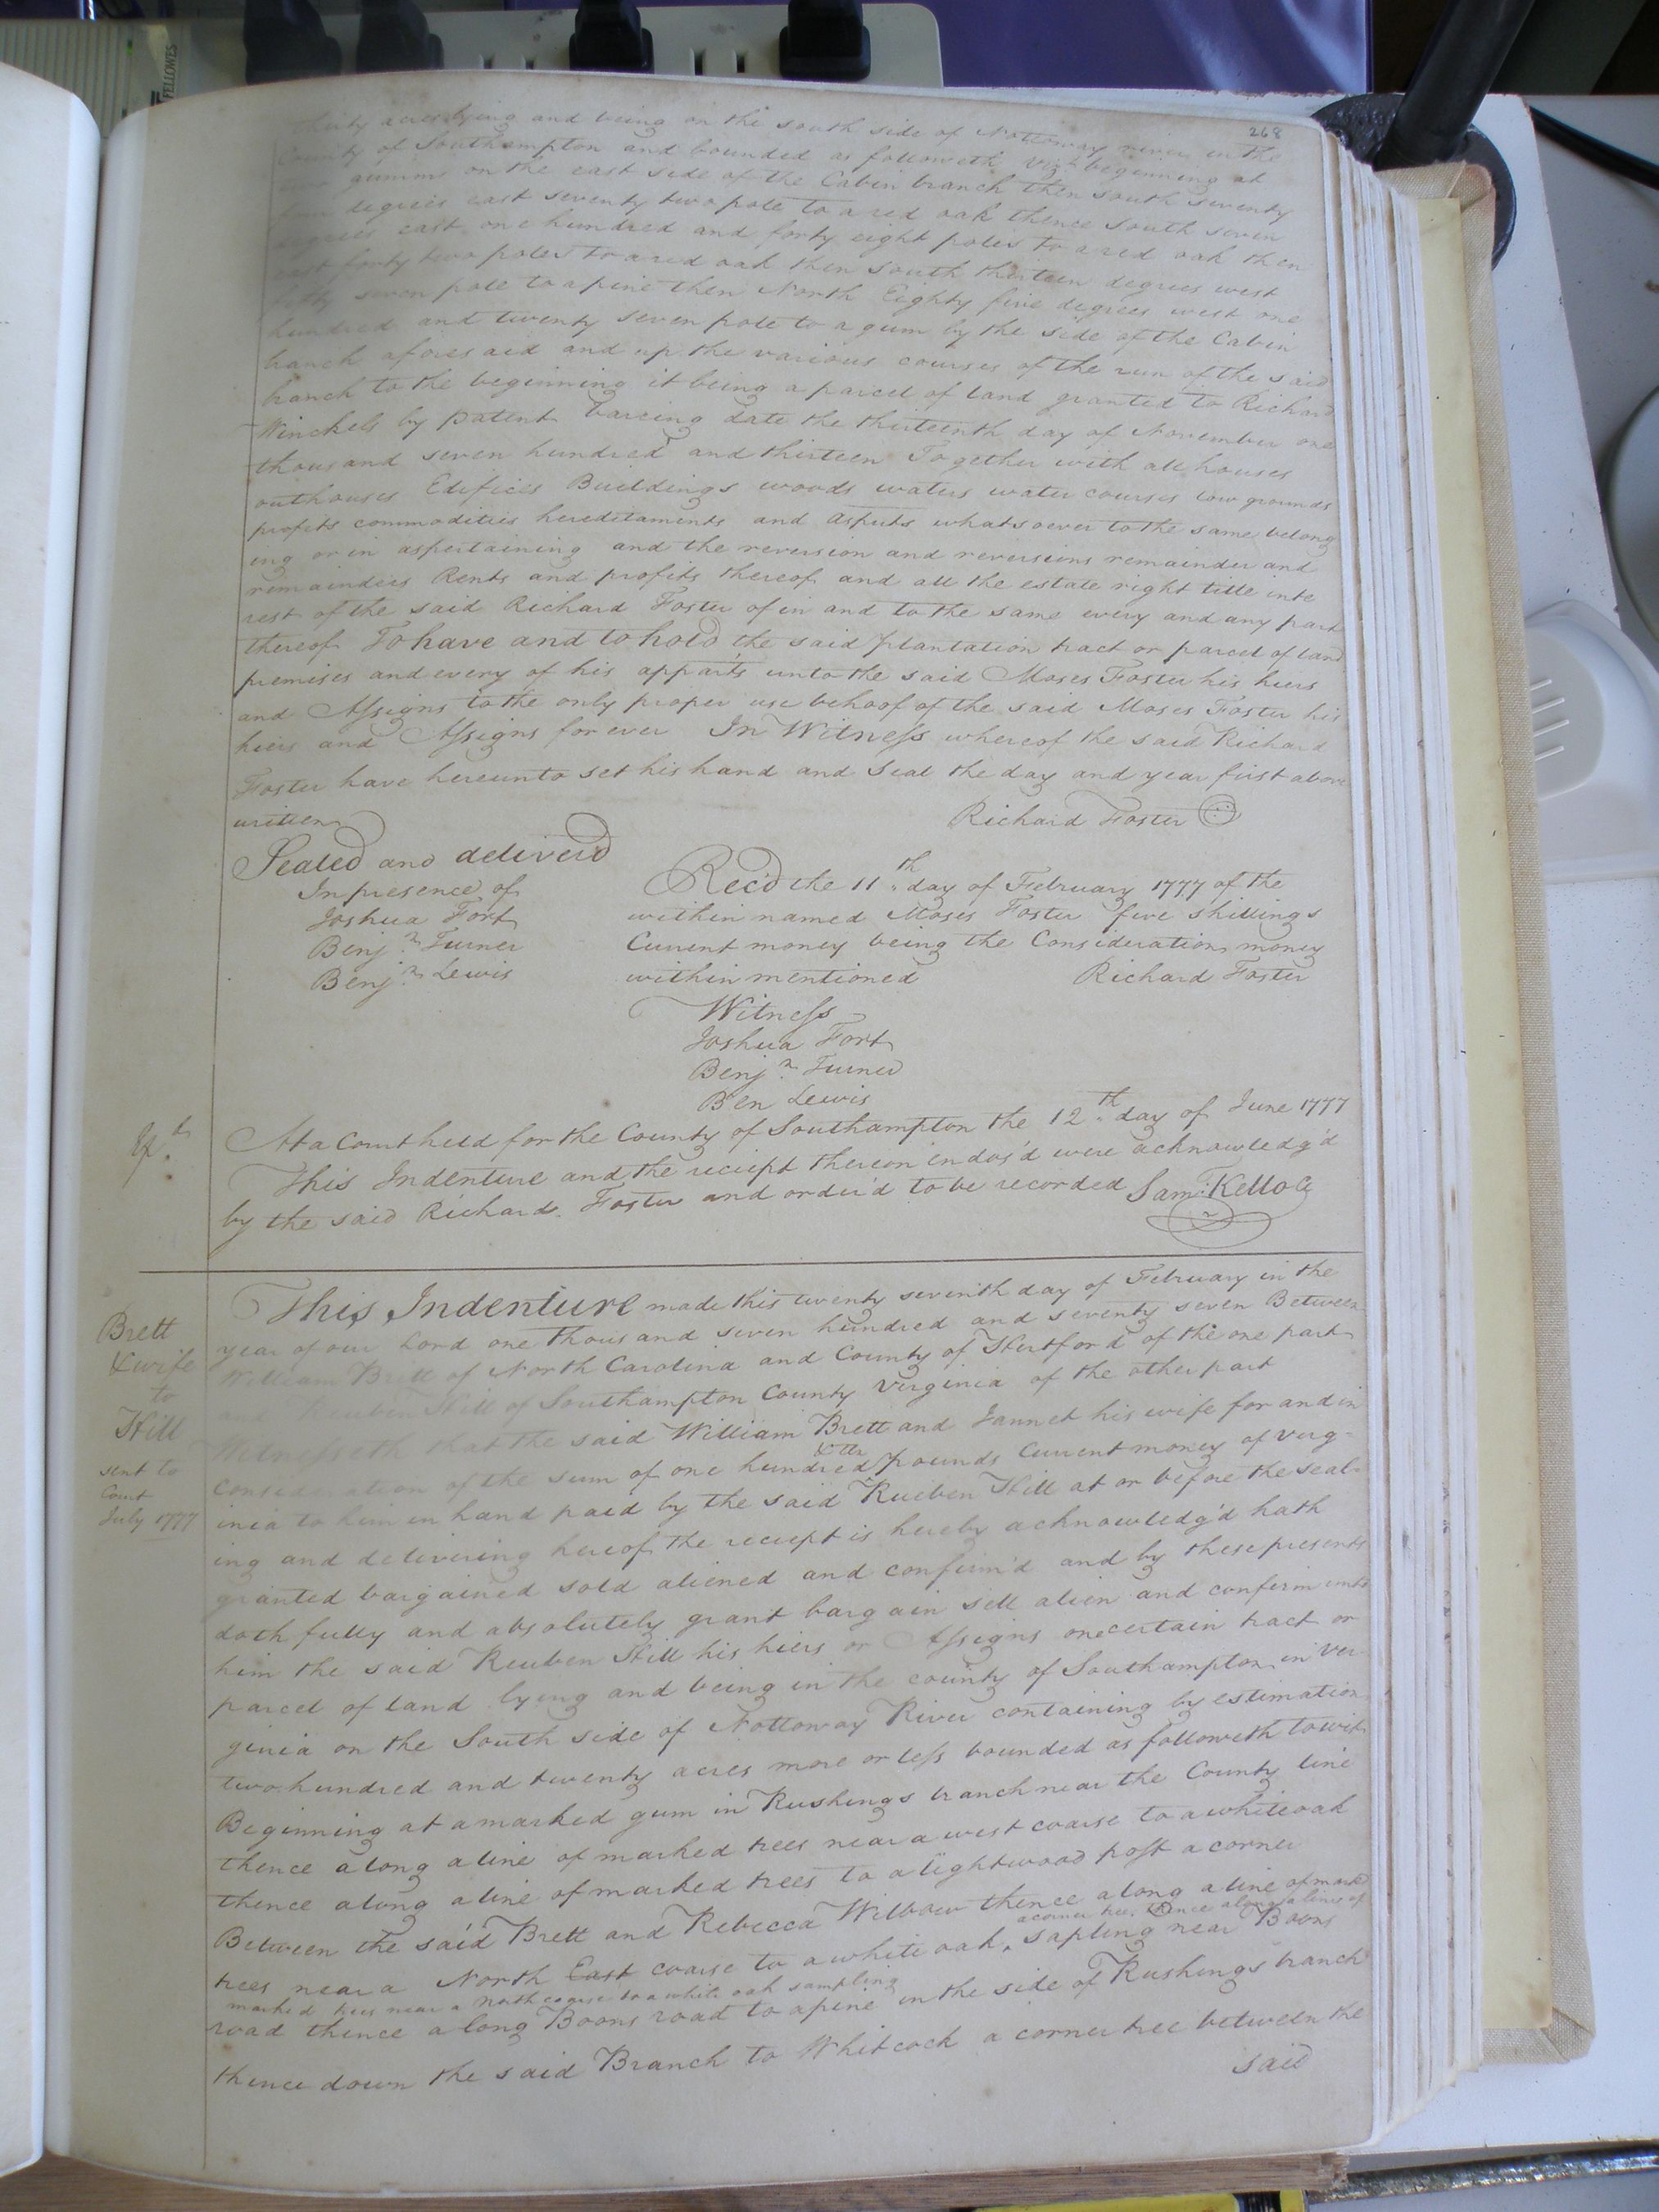 FELLOWES
268
thirty acres lying and being on the south side of Nottoway river in the
County of Southampton and bounded as followeth Vizt beginning at
gumms on the east side of the Cabin branch then South seventy
degrees east seventy two pole to a red oak thence South seven
degrees east one hundred and forty eight poles to a red oak then
east forty two poles to a red oak then South thirteen degrees west
seven pole to a pine then North Eighty five degrees west one
hundred and twenty seven pole to a gum by the side of the Cabin
branch aforesaid and up the various courses of the run of the said
branch to the beginning it being a parcel of land granted to Richard
Winckels by patent bareing date the thirteenth day of November one
thousand seven hundred and thirteen Together with all houses
outhouses Edifices Buildings woods waters water courses low grounds
profits commodities hereditaments and Asputs whatsoever to the same belong
ing or in aspertaining and the reversion and reversions remainder and
remainders Rents and profits thereof and all the estate right title inte
rest of the said Richard Foster of in and to the same every and any part
thereof To have and to hold the said plantation tract or parcel of land
premises and every of his appart's unto the said Moses Foster his hiers
and Assigns to the only proper use behoof of the said Moses Foster his
hiers and Assigns for ever In Witness whereof the said Richard
Foster have hereunto set his hand and Seal the day and year first above
written
Richard Foster
Sealed and deliver'd
In presence of
Joshua Fort
Benjn Turner
Benjn Lewis
Rec'd the 11th day of February 1777 of the
within named Moses Foster five shillings
Current money being the Consideration money
within mentioned Richard Foster
Witness
Joshua Fort
Benjn Turner
Ben Lewis
At a Court held for the County of Southampton the 12th day of June 1777
This Indenture and the reciept thereon indos'd were acknowledg'd
by the said Richard Foster and order'd to be recorded Sam: Kello C
Brett
& wife
to
Hill
sent to
Court
July 1777
This Indenture made this twenty seventh day of February in the
year of our Lord one thousand and seven hundred and seventy seven Between
William Brett of North Carolina and County of Hertford of the one part
and Reuben Hill of Southampton County Virginia of the other part
Witnesseth that the said William Brett and Jannet his wife for and in
Consideration of the sum of one hundred & ten pounds Current money of Virg-
inia to him in hand paid by the said Rueben Hill at or before the seal-
ing and delivering hereof the reciept is hereby acknowledg'd hath
granted bargained sold aliened and confirm'd and by these presents
doth fully and absolutely grant bargain sell alien and confirm unto
him the said Reuben Hill his hiers or Assigns one certain tract or
parcel of land lying and being in the county of Southampton in Vir-
ginia on the South side of Nottoway River containing by estimation
two hundred and twenty acres more or less bounded as followeth to wit
Beginning at a marked gum in Rushings branch near the County line
thence along a line of marked trees near a west coarse to a white oak
thence along a line of marked trees to a lightwood post a corner
Between the said Brett and Rebecca Wilbow thence along a line of mark'd
a corner tree thence along a line of
trees near a North East coarse to a white oak sapling near Boons
marked trees near a North coarse to a white oak sampling
road thence along Boons road to a pine in the side of Rushings branch
thence down the said Branch to Whitcock a corner tree between the
said